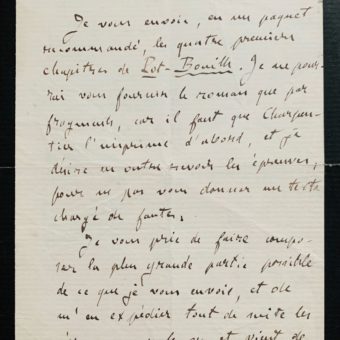 Je vous envoie, en un paquet
recommandé, les quatre premiers
chapitres de Pot-Bouille. Je ne pour-
rai vous fournir le roman que par
fragments, car il faut que Charpen-
tier l'imprime d'abord, et je
désire en outre revoir les épreuves,
pour ne pas vous donner un texte
chargé de fautes.
Je vous prie de faire compo-
ser la plus grande partie possible
de ce que je vous envoie, et de
m'en expédier tout de suite les
et vient de